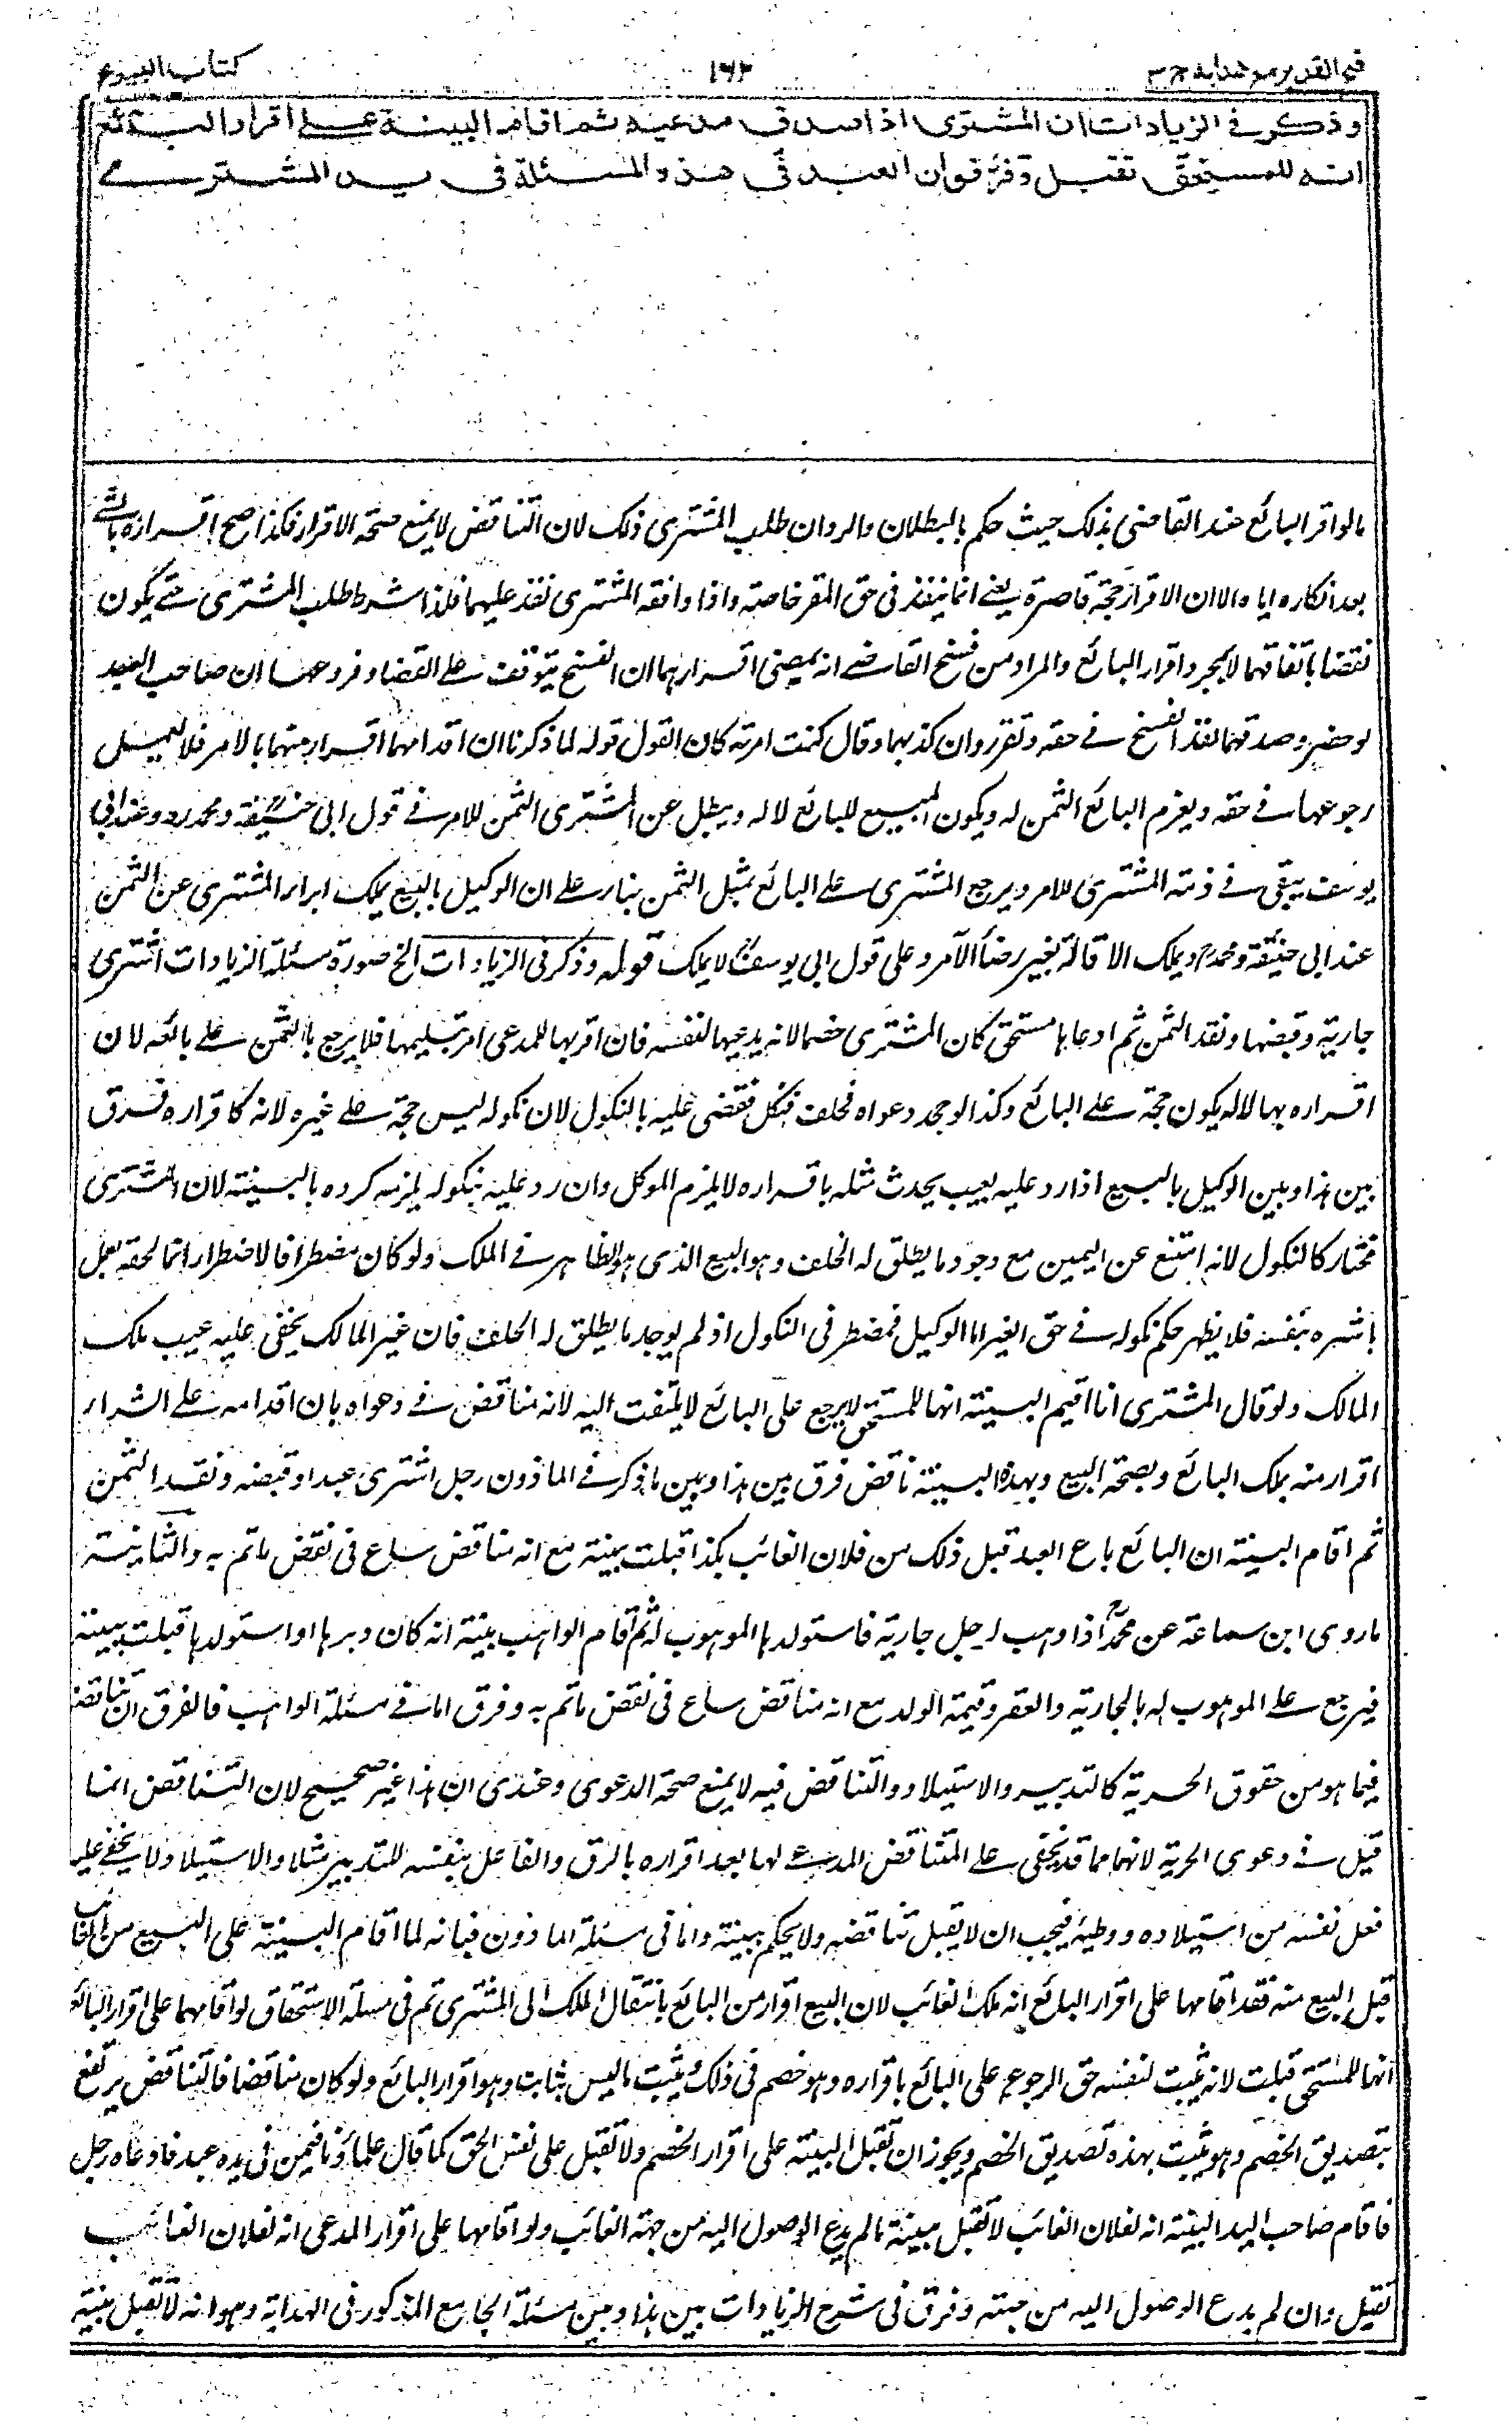 فتح القدير مع هدايه ج ٣
١٦٢
كتاب البيوع
وذكر في الزيادات ان المشترى اذا صدق مدعيه ثم اقام البينة على اقرار البائع
انه للمستحق تقبل وفرقوا ان العبد في هذه المسئلة في يد المشترى
مالو اقر البائع عند القاضى بذلك حيث حكم بالبطلان والرد ان طلب المشترى ذلك لان التناقض لا يمنع صحة الاقرار فكذا صح اقراره بالشئ
بعد انكاره اياه الا ان الاقرار حجة قاصرة يعنى انما ينفذ فى حق المقر خاصة واذا وافقه المشترى نفذ عليهما فلذا شرط طلب المشترى حتى يكون
نقضا باتفاقهما لا بمجرد اقرار البائع والمراد من فسخ القاضى انه يمضى اقرارهما ان الفسخ يتوقف على القضا وفروعها ان صاحب العبد
لو حضر وصدقهما نفذ الفسخ فى حقه وتقرر وان كذبهما وقال كنت امرته كان القول قوله لما ذكرنا ان اقدامهما اقرار منهما بالامر فلا يعمل
رجوعهما فى حقه ويغرم البائع الثمن له ويكون المبيع للبائع لا له ويبطل عن المشترى الثمن للامر فى قول ابى حنيفة ومحمد وعند ابى
يوسف يبقى فى ذمة المشترى للامر ويرجع المشترى على البائع بمثل الثمن بناء على ان الوكيل بالبيع يملك ابراء المشترى عن الثمن
عند ابى حنيفة ومحمد ويملك الاقالة بغير رضا الآمر وعلى قول ابى يوسف لا يملك قوله وذكر فى الزيادات الخ صورة مسئلة الزيادات اشترى
جارية وقبضها ونقد الثمن ثم ادعاها مستحق كان المشترى خصما لانه يدعيها لنفسه فان اقر بها للمدعى امر بتسليمها فلا يرجع بالثمن على بائعه لان
اقراره بها لا يكون حجة على البائع وكذا لو جحد دعواه فحلف فنكل فقضى عليه بالنكول لان نكوله ليس حجة على غيره لانه كاقراره فرق
بين هذا وبين الوكيل بالبيع اذا رد عليه بعيب يحدث مثله باقراره لا يلزم الموكل وان رد عليه بنكوله يلزمه كرده بالبينة لان المشترى
مختار كالنكول لانه امتنع عن اليمين مع وجود ما يطلق له الحلف وهو البيع الذى هو الظاهر فى الملك ولو كان مضطرا فالاضطرار انما لحقه بعمل
باشره بنفسه فلا يظهر حكم نكوله فى حق الغير اما الوكيل فمضطر فى النكول اذ لم يوجد ما يطلق له الحلف فان غير المالك يخفى عليه عيب ملك
المالك ولو قال المشترى انا اقيم البينة انها للمستحق لا يرجع على البائع لا يلتفت اليه لانه مناقض فى دعواه بان اقدامه على الشراء
اقرار منه بملك البائع وبصحة البيع وبهذه البينة ناقض فرق بين هذا وبين ما ذكر فى الماذون رجل اشترى عبدا وقبضه ونقد الثمن
ثم اقام البينة ان البائع باع العبد قبل ذلك من فلان الغائب بكذا قبلت بينة مع انه مناقض ساع فى نقض ما تم به والثانية
ما روى ابن سماعة عن محمد اذا وهب لرجل جارية فاستولدها الموهوب له ثم اقام الواهب بينة انه كان دبرها او استولدها قبلت بينته
فيرجع على الموهوب له بالجارية والعقر وقيمة الولد مع انه مناقض ساع فى نقض ما تم به وفرق اما فى مسئلة الواهب فالفرق ان تناقضه
فيما هو من حقوق الحرية كالتدبير والاستيلاد والتناقض فيه لا يمنع صحة الدعوى وعندى ان هذا غير صحيح لان التناقض انما
قبل فى دعوى الحرية لانهما مما قد يخفى على المتناقض المدعى لهما بعد اقراره بالرق والفاعل بنفسه للتدبير مثلا والاستيلاد لا يخفى عليه
فعل نفسه من استيلاده ووطيه فيجب ان لا يقبل تناقضه ولا يحكم ببينة واما فى مسئلة الماذون فبانه لما اقام البينة على البيع من الغائب
قبل البيع منه فقد اقامها على اقرار البائع انه ملك الغائب لان البيع اقرار من البائع بانتقال الملك الى المشترى ثم فى مسئلة الاستحقاق لو اقامها على اقرار البائع
انها للمستحق قبلت لانه يثبت لنفسه حق الرجوع على البائع باقراره وهو خصم فى ذلك يثبت ما ليس بثابت وهو اقرار البائع ولو كان مناقضا فالتناقض يرتفع
بتصديق الخصم وهو يثبت بهذه تصديق الخصم ويجوز ان تقبل البينة على اقرار الخصم ولا تقبل على نفس الحق كما قال علماؤنا فيمن فى يده عبد فادعاه رجل
فاقام صاحب اليد البينة انه لفلان الغائب لا تقبل ببينة مالم يدع الوصول اليه من جهة الغائب ولو اقامها على اقرار المدعى انه لفلان الغائب
تقبل وان لم يدع الوصول اليه من جهته وفرق فى شرح الزيادات بين هذا وبين مسئلة الجامع المذكور فى الهداية وهو انه لا تقبل بينة